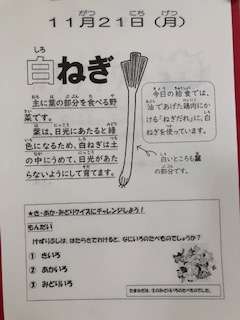 11月21日(月)
がつ にち げつ
しろ
白ねぎ
主に葉の部分を食べる野
菜です。
葉は、日光にあたると緑
色になるため、白ねぎは土
の中にうめて、日光があた
らないようにして育てます。
今日の給食では、
油であげた鶏肉にか
ける「ねぎだれ」に、白
ねぎを使っています。
白いところも葉
の部分です。
★き・あか・みどりクイズにチャレンジしよう!
もんだい
けずりぶしは、はたらきでわけると、なにいろのたべものでしょうか?
① きいろ
② あかいろ
③ みどりいろ